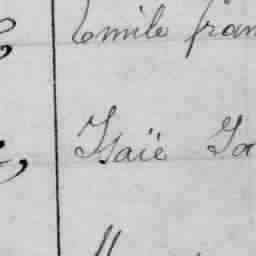 Emile fran
Isaïe Jo